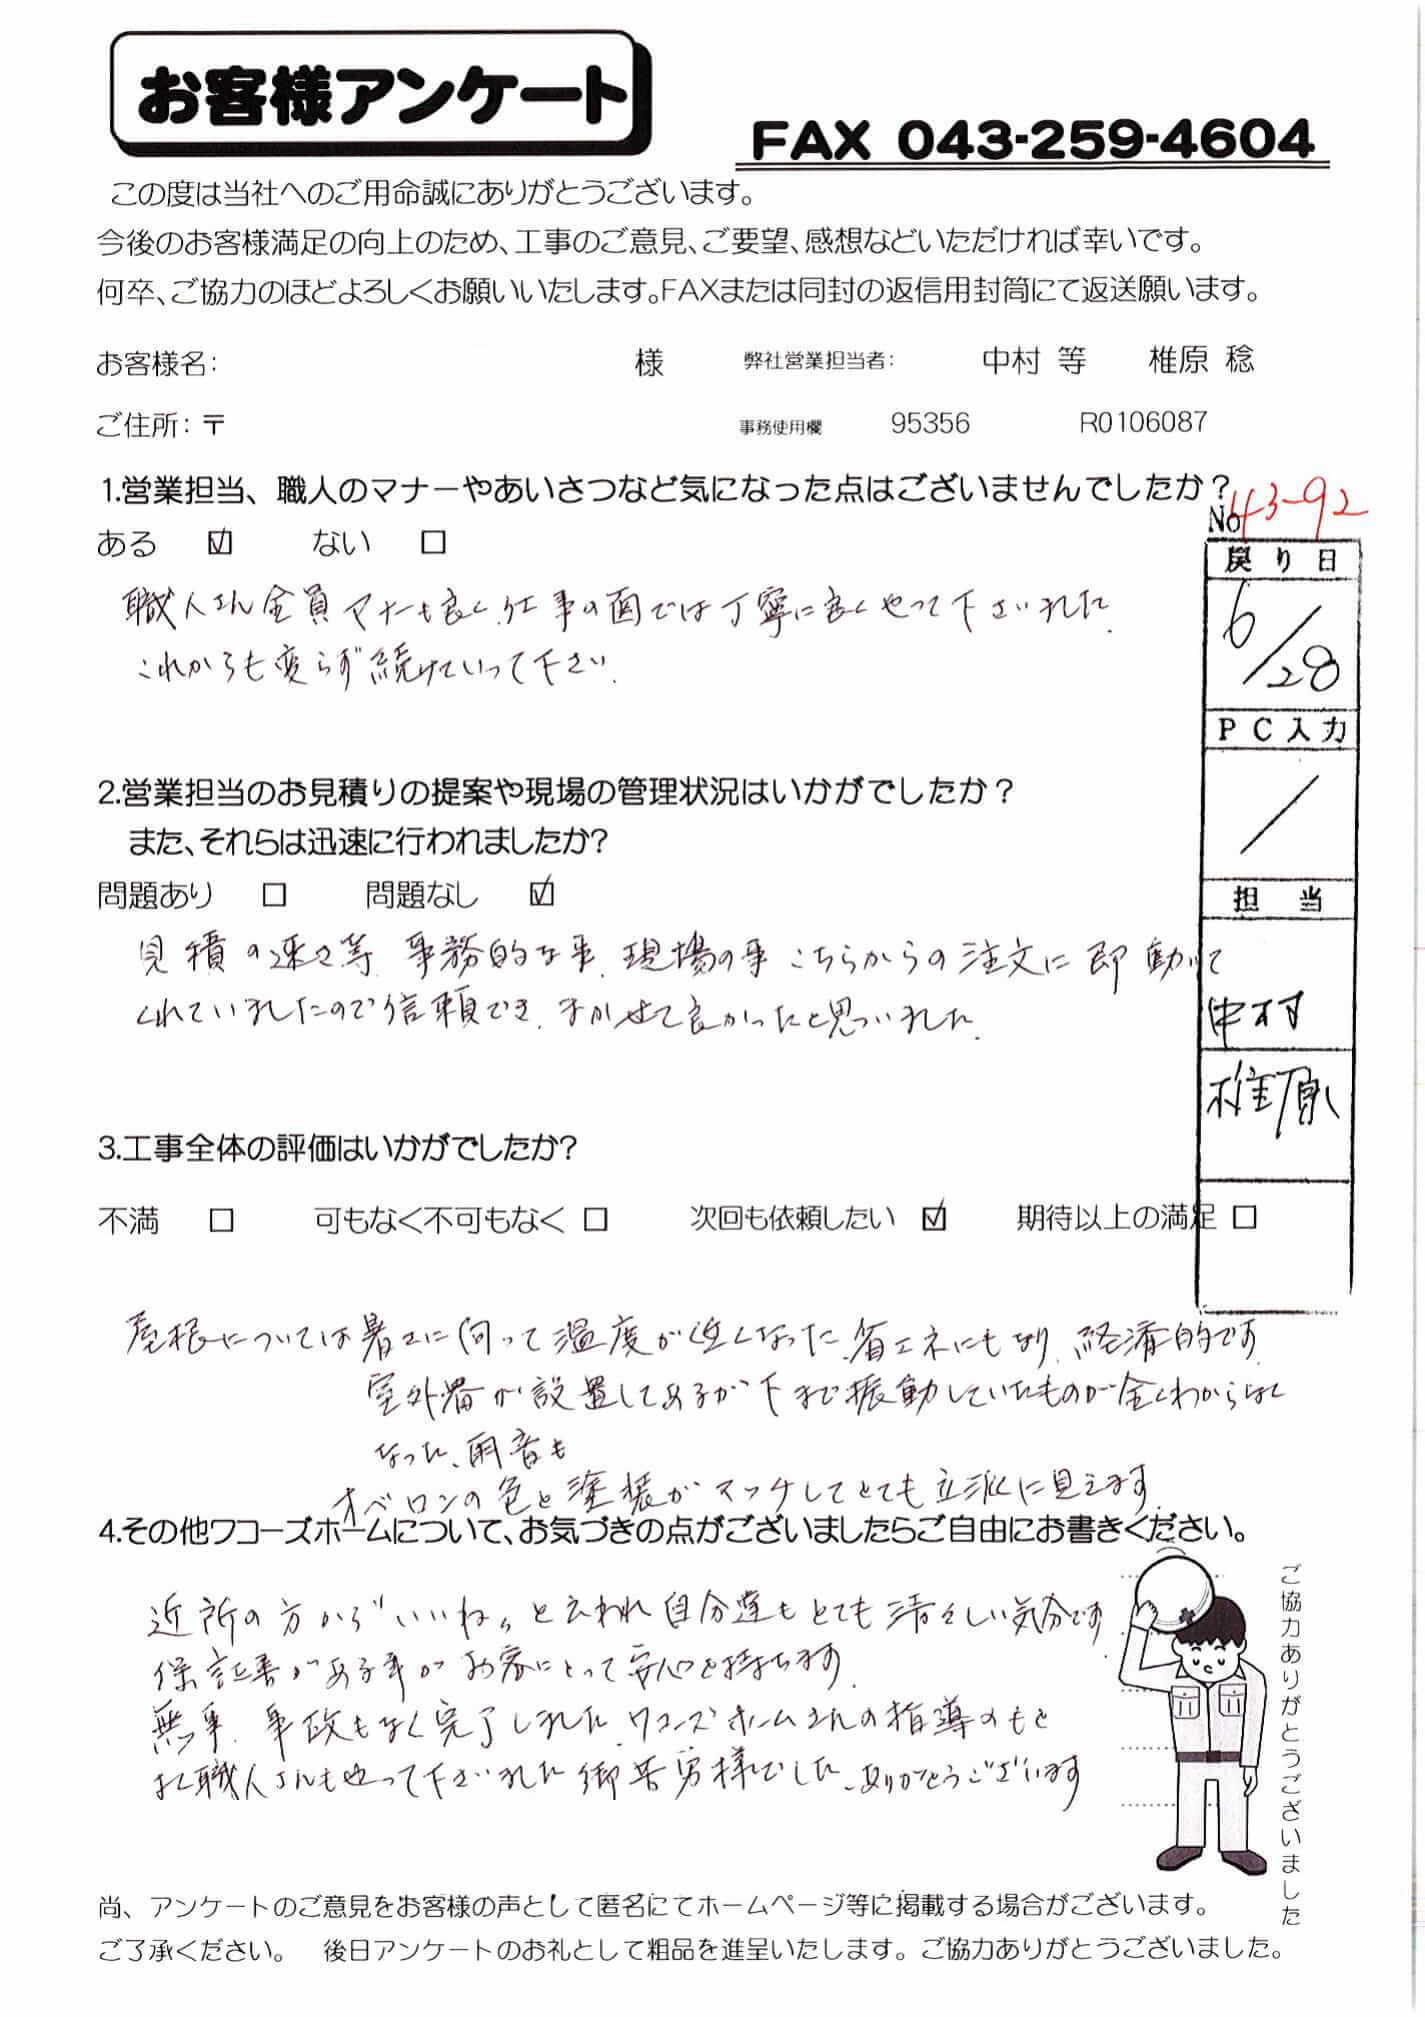 お客様アンケート
FAX 043-259-4604
この度は当社へのご用命誠にありがとうございます。
今後のお客様満足の向上のため、工事のご意見、ご要望、感想などいただければ幸いです。
何卒、ご協力のほどよろしくお願いいたします。FAXまたは同封の返信用封筒にて返送願います。
お客様名： 様 弊社営業担当者： 中村 等 椎原 稔
ご住所：〒 事務使用欄 95356 R0106087
1.営業担当、職人のマナーやあいさつなど気になった点はございませんでしたか？
No 43-92
ある ☑ ない □
戻り日
6/28
職人さん全員マナーも良く、仕事の面では丁寧に良くやって下さいました。
これからも変らず続けていって下さい。
PC入力
/
2.営業担当のお見積りの提案や現場の管理状況はいかがでしたか？
また、それらは迅速に行われましたか?
問題あり □ 問題なし ☑
担当
見積の速さ等、事務的な事、現場の事こちらからの注文に即動いて
くれていましたので信頼でき、まかせて良かったと思いました。
中村
椎原
3.工事全体の評価はいかがでしたか?
不満 □ 可もなく不可もなく □ 次回も依頼したい ☑ 期待以上の満足 □
屋根については暑さに向って温度が低くなった、省エネにもなり、経済的です。
室外機が設置してあるが下まで振動していたものが全くわからなく
なった、雨音も
オベロンの色と塗装がマッチしてとても立派に見えます。
4.その他ワコーズホームについて、お気づきの点がございましたらご自由にお書きください。
近所の方から"いいね"と云われ自分達もとても清々しい気分です
保証書がある事がお客にとって安心を持ちます。
無事、事故もなく完了しました。ワコーズホームさんの指導のもと
よく職人さんもやって下さいました御苦労様でした、ありがとうございます
ご協力ありがとうございました
尚、アンケートのご意見をお客様の声として匿名にてホームページ等に掲載する場合がございます。
ご了承ください。 後日アンケートのお礼として粗品を進呈いたします。ご協力ありがとうございました。